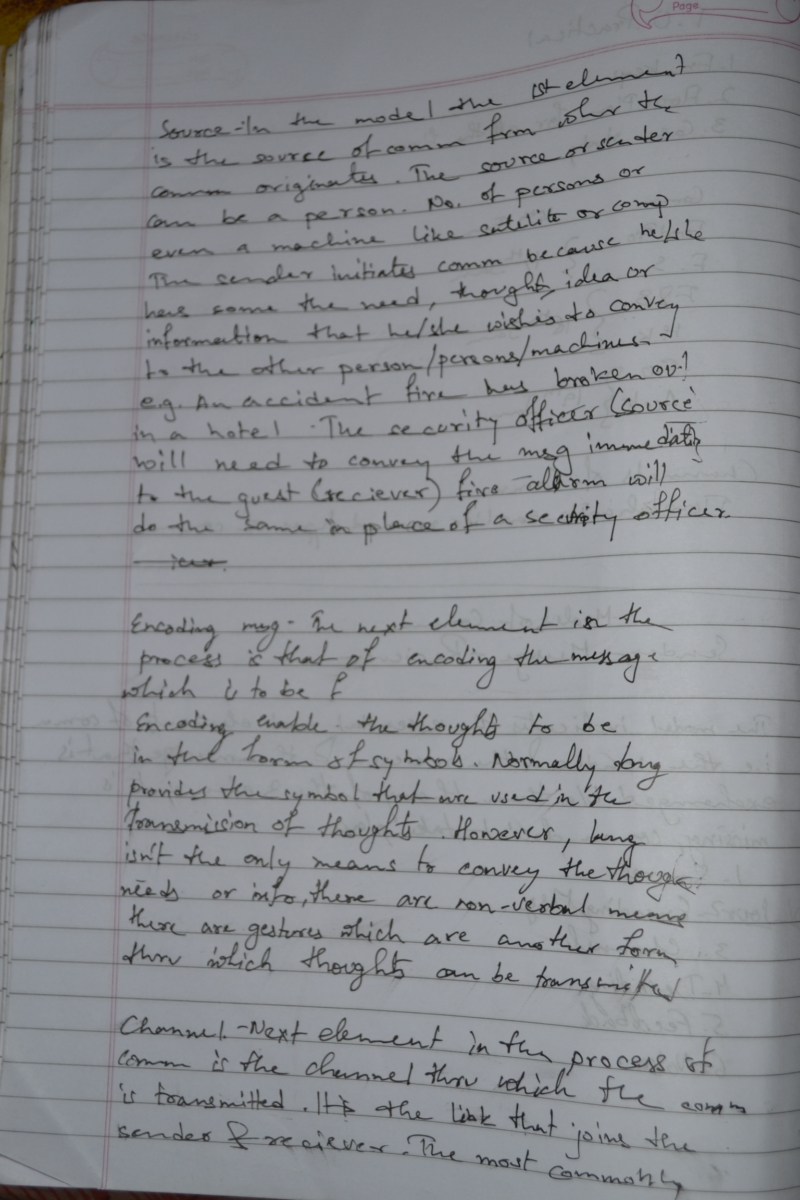 Page
Source - In the model the 1st element
is the source of comm frm whr the
comm originates. The source or sender
can be a person. No. of persons or
even a machine like satelite or comp
The sender initiates comm because he/she
has some the need, thought, idea or
information that he/she wishes to convey
to the other person/persons/machines.
e.g. An accident fire has broken out
in a hotel. The security officer (source
will need to convey the msg immediatly
to the guest (reciever) fire alarm will
do the same in place of a security officer
icer.
Encoding msg - The next element in the
process is that of encoding the message
which is to be f
Encoding enable the thoughts to be
in the form of symbols. Normally lang
provides the symbol that are used in the
transmission of thoughts. However, lang
isn't the only means to convey the though
needs or info, there are non-verbal means
there are gestures which are another form
thru which thoughts can be transmitted
Channel. - Next element in the process of
comm is the channel thru which the comm
is transmitted. It is the link that joins the
sender & reciever. The most commonly